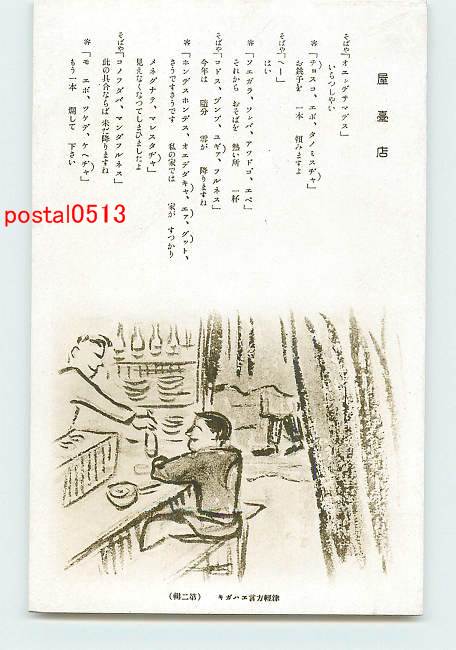 屋臺店
そばや「オエッデサマデス」
いらつしやい
客「チョスコ、エボ、タノミスヂャ」
お銚子を 一本 頼みますよ
そばや「ヘー」
はい
客「ソエガラ、ソンバ、アヅドゴ、エペ」
それから おそばを 熱い所 一杯
そばや「コドス、ブンブ、ユギァ、フルネス」
今年は 随分 雪が 降りますね
客「ホンデスホンデス、オエデダキャ、エァ、グット、
さうですさうです 私の家では 家が すつかり
メネグナテ、マレスタヂャ」
見えなくなつてしまひましたよ
そばや「コノフダバ、マンダフルネス」
此の具合ならば 未だ降りますね
客「モ エボ、ツケデ、ケヘヂャ」
もう一本 燗して 下さい
postal0513
津輕方言エハガキ (第二輯)